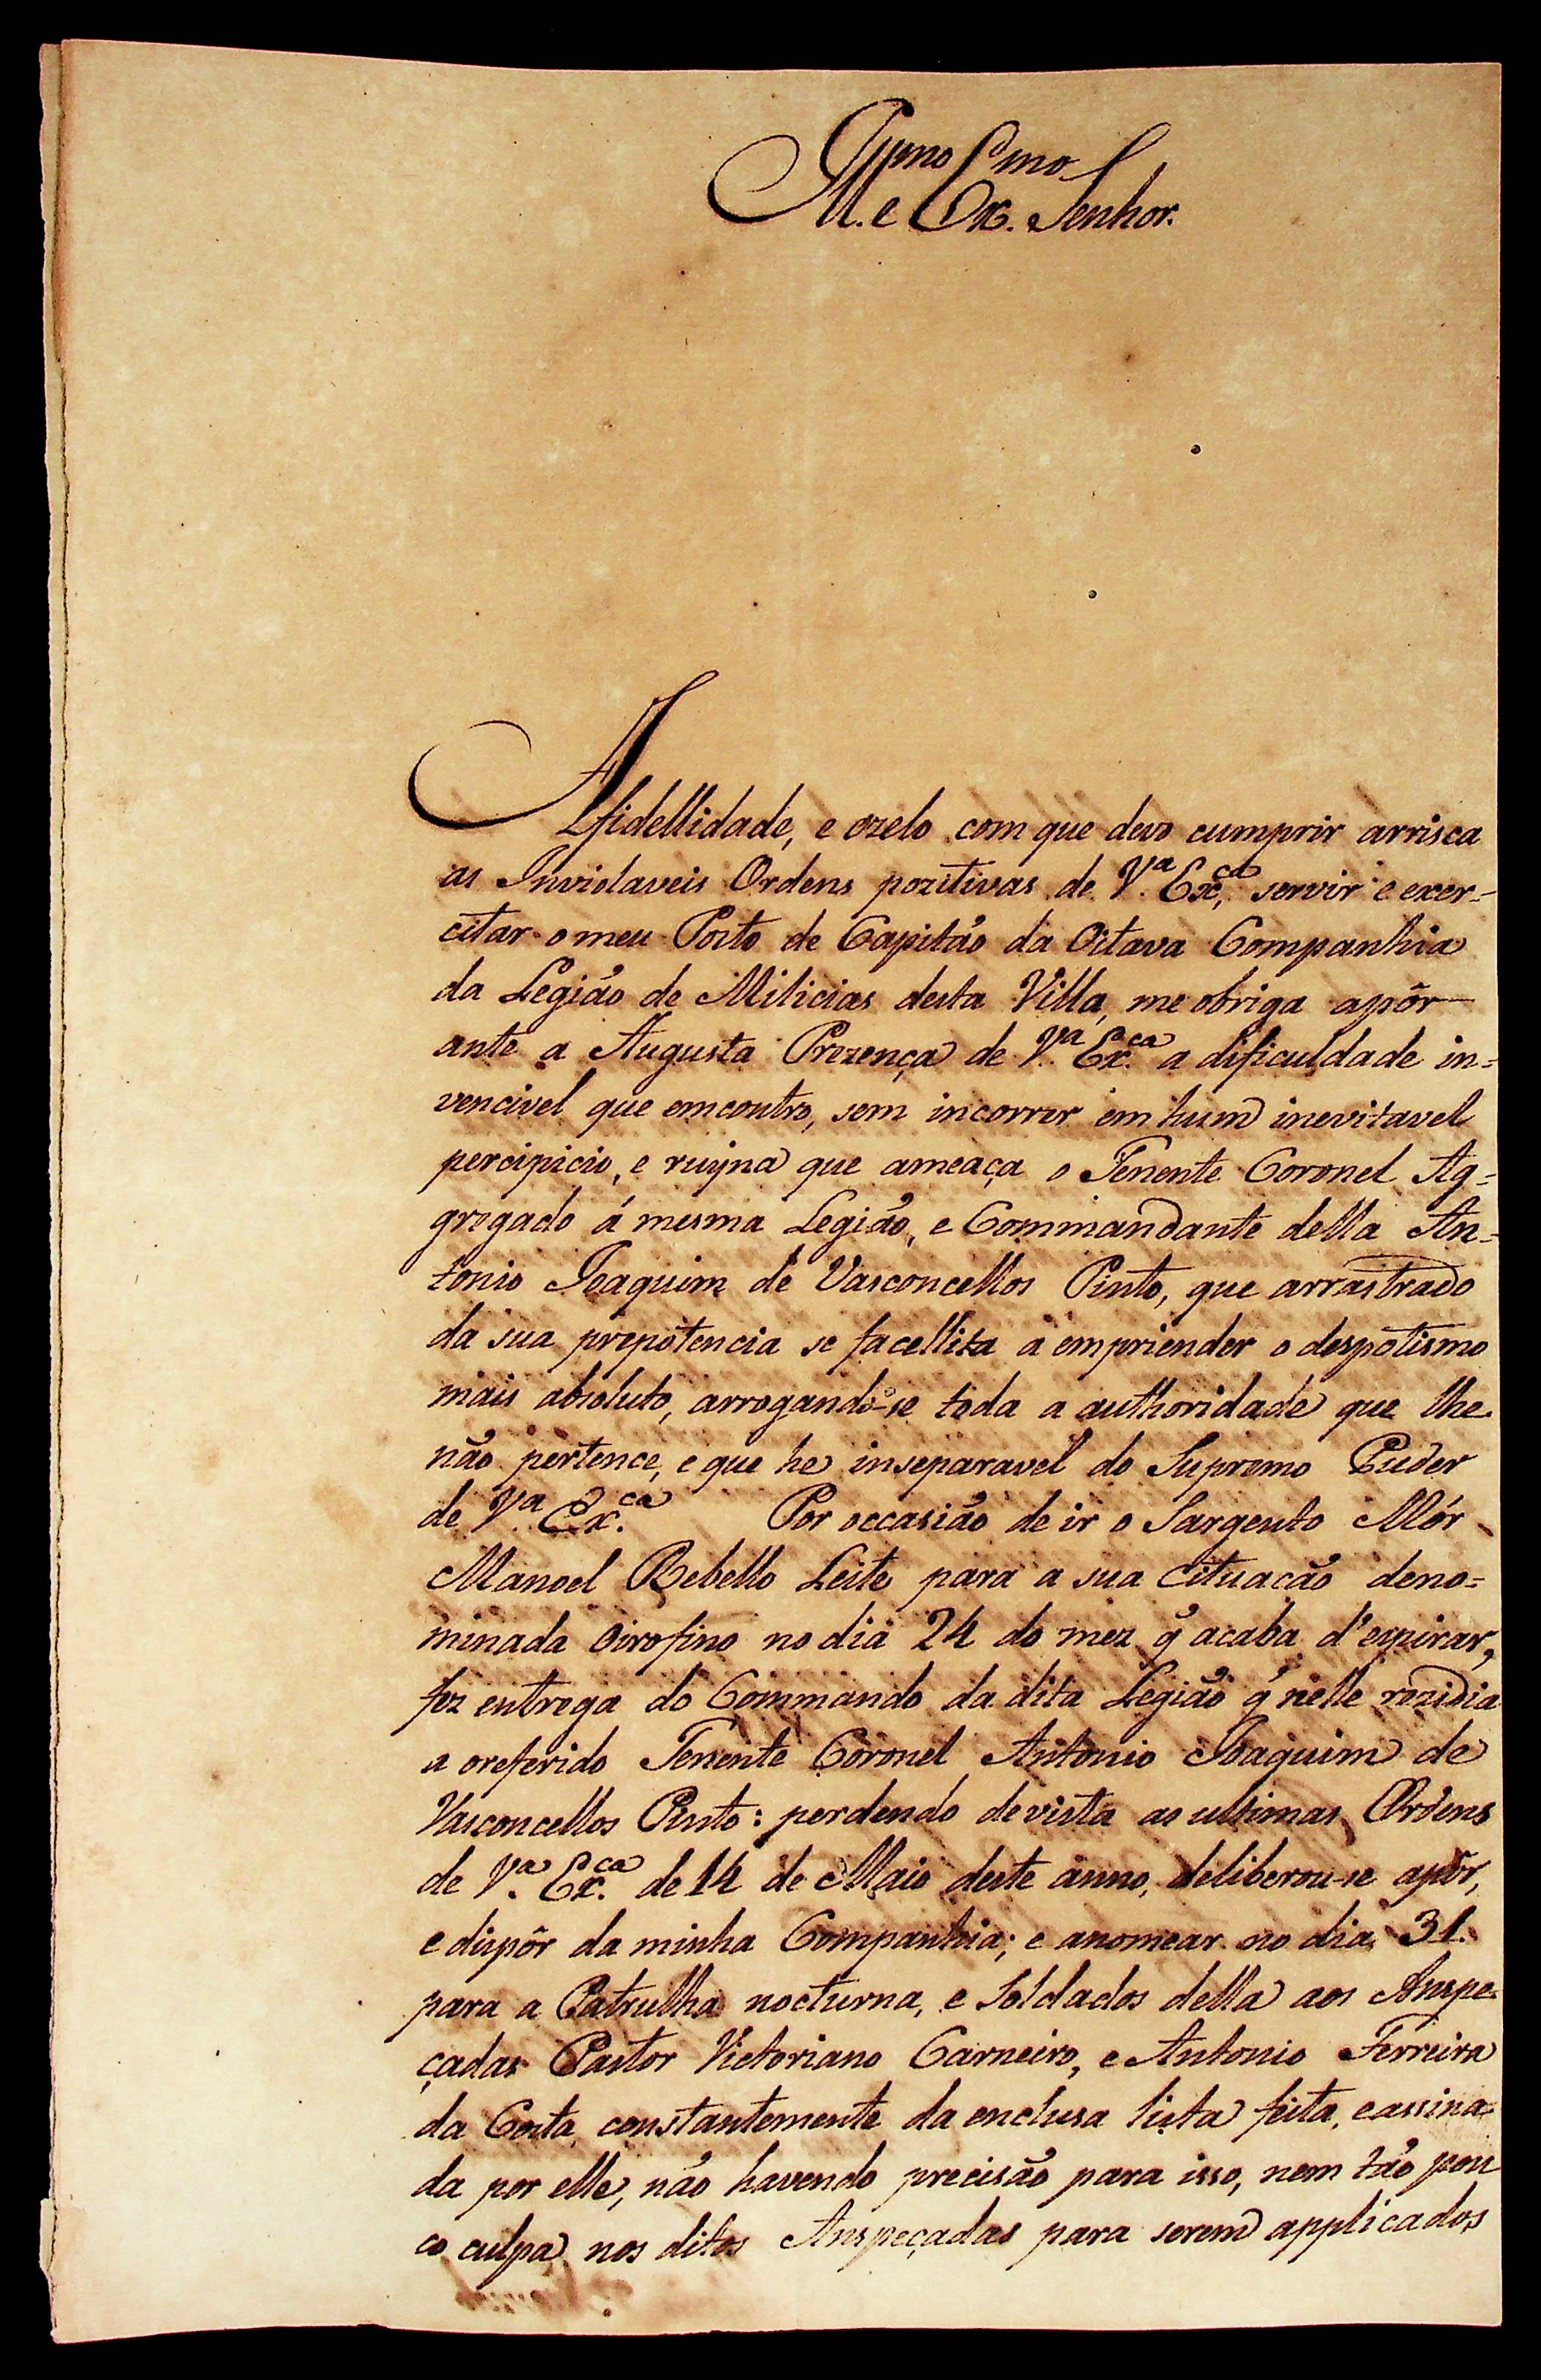 Ill.mo e Ex.mo Senhor.
A fidellidade, e ozelo com que devo cumprir arrisca
as Inviolaveis Ordens pozitivas de V.a Ex.ca, servir e exer-
citar o meu Posto de Capitão da Oitava Companhia
da Legião de Milicias desta Villa, me obriga apôr
ante a Augusta Prezença de V.a Ex.ca a dificuldade in=
vencivel que emcontro, sem incorrer em hum inevitavel
percipicio, e ruyna que ameaça o Tenente Coronel Ag=
gregado á mesma Legião, e Commandante della An=
tonio Joaquim de Vasconcellos Pinto, que arrastrado
da sua prepotencia se facellita a empriender o despotismo
mais absoluto, arrogando-se toda a authoridade que lhe
não pertence, e que he inseparavel do Supremo Puder
de V.a Ex.ca Por occasião de ir o Sargento Mór
Manoel Rebello Leite para a sua Cituacão deno=
minada Oirofino no dia 24 do mez q̃ acaba d'expirar,
fez entrega do Commando da dita Legião q̃ nelle rezidia
a oreferido Tenente Coronel Antonio Joaquim de
Vasconcellos Pinto: perdendo devista as ultimas Ordens
de V.a Ex.ca de 14 de Maio deste anno, deliberou-se apôr,
e dispôr da minha Companhia; e anomear no dia 31.
para a Patrulha nocturna, e Soldados della aos Anspe-
çadas Pastor Victoriano Carneiro, e Antonio Ferreira
da Costa, constantemente da enclusa lista feita, eassina=
da por elle, não havendo precisão para isso, nem tão pou
co culpa nos ditos Anspeçadas para serem applicados